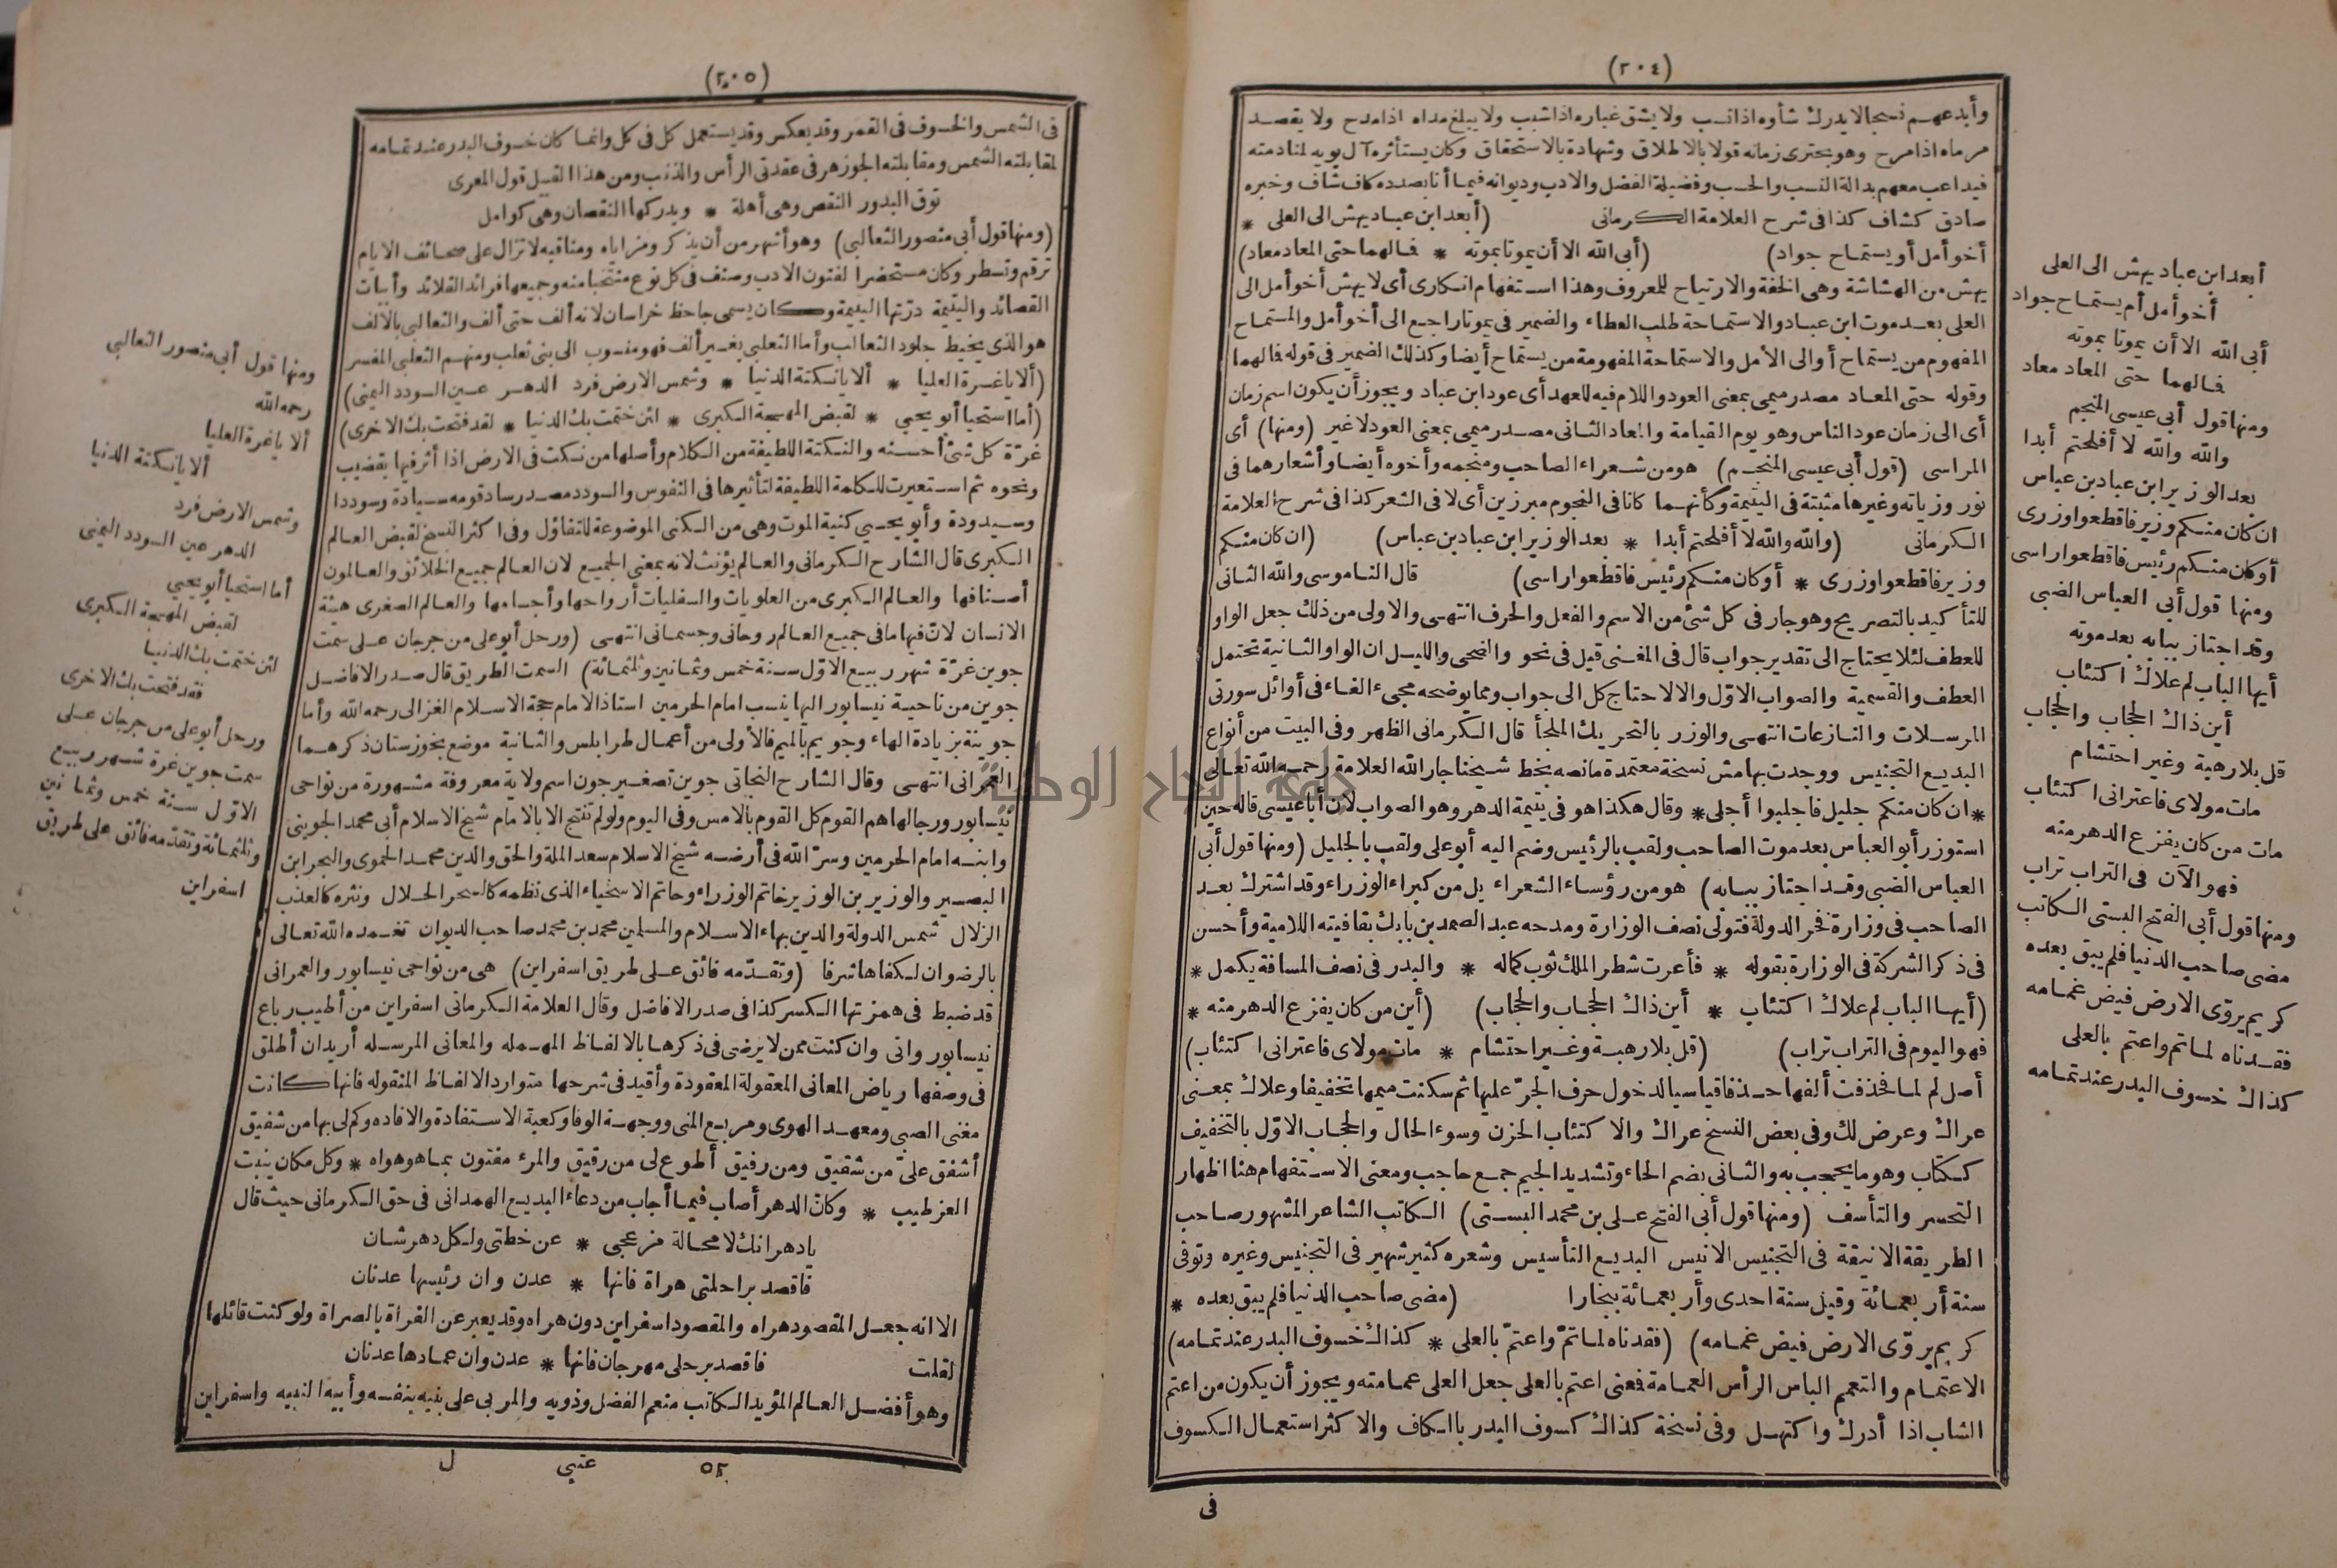 (٢٠٤)
وأبدعهم نسجا لا يدرك شأوه اذا نسب ولا يشق غباره اذا شبب ولا يبلغ مداه اذا مدح ولا يقصد
مرماه اذا مرح وهو بحترى زمانه قولا بالاطلاق وشهادة بالاستحقاق وكان يستأثره آل بويه لمنادمته
فيداعب معهم بدالة النسب والحسب وفضيلة الفضل والادب وديوانه فيما أنا بصدده كاف شاف وخبره
صادق كشاف كذا فى شرح العلامة الكرمانى (أبعد ابن عباد يهش الى العلى *
أخو أمل أو يستماح جواد) (أبى الله الا أن يموتا بموته * فمالهما حتى المعاد معاد)
يهش من الهشاشة وهى الخفة والارتياح للمعروف وهذا استفهام انكارى أى لا يهش أخو أمل الى
العلى بعد موت ابن عباد والاستماحة طلب العطاء والضمير فى يموتا راجع الى أخو أمل والمستماح
المفهوم من يستماح أو الى الأمل والاستماحة المفهومة من يستماح أيضا وكذلك الضمير فى قوله فمالهما
وقوله حتى المعاد مصدر ميمى بمعنى العود واللام فيه للعهد أى عود ابن عباد ويجوز أن يكون اسم زمان
أى الى زمان عود الناس وهو يوم القيامة والمعاد الثانى مصدر ميمى بمعنى العود لا غير (ومنها) أى
المراسى (قول أبى عيسى المنجم) هو من شعراء الصاحب ومنجمه وأخوه أيضا وأشعارهما فى
نوروزياته وغيرها مثبتة فى اليتيمة وكأنهما كانا فى النجوم مبرزين أى لا فى الشعر كذا فى شرح العلامة
الكرمانى (والله والله لا أفلحتم أبدا * بعد الوزير ابن عباد بن عباس) (ان كان منكم
وزير فاقطعوا وزرى * أو كان منكم رئيس فاقطعوا راسى) قال الناموسى والله الثانى
للتأكيد بالتصريح وهو جار فى كل شئ من الاسم والفعل والحرف انتهى والاولى من ذلك جعل الواو
للعطف لئلا يحتاج الى تقدير جواب قال فى المغنى قيل فى نحو والضحى والليل ان الواو الثانية تحتمل
العطف والقسمية والصواب الاوّل والا لاحتاج كل الى جواب ومما يوضحه مجىء الفاء فى أوائل سورتى
المرسلات والنازعات انتهى والوزر بالتحريك الملجأ قال الكرمانى الظهر وفى البيت من أنواع
البديع التجنيس ووجدت بهامش نسخة معتمدة مانصه بخط شيخنا جار الله العلامة رحمه الله تعالى
* ان كان منكم جليل فاجلبوا أجلى * وقال هكذا هو فى يتيمة الدهر وهو الصواب لان أبا عيسى قاله حين
استوزر أبو العباس بعد موت الصاحب ولقب بالرئيس وضم اليه أبو على ولقب بالجليل (ومنها قول أبى
العباس الضبى وقد اجتاز ببابه) هو من رؤساء الشعراء بل من كبراء الوزراء وقد اشترك بعد
الصاحب فى وزارة فخر الدولة فتولى نصف الوزارة ومدحه عبد الصمد بن بابك بقافيته اللامية وأحسن
فى ذكر الشركة فى الوزارة بقوله * فأعرت شطر الملك ثوب كماله * والبدر فى نصف المسافة يكمل *
(أيها الباب لم علاك اكتئاب * أين ذاك الحجاب والحجاب) (أين من كان يفزع الدهر منه *
فهو اليوم فى التراب تراب) (قل بلا رهبة وغير احتشام * مات مولاى فاعترانى اكتئاب)
أصل لم لما فحذفت ألفها حذفا قياسيا لدخول حرف الجرّ عليها ثم سكنت ميمها تخفيفا وعلاك بمعنى
عراك وعرض لك وفى بعض النسخ عراك والاكتئاب الحزن وسوء الحال والحجاب الاوّل بالتخفيف
ككتاب وهو ما يحجب به والثانى بضم الحاء وتشديد الجيم جمع حاجب ومعنى الاستفهام هنا اظهار
التحسر والتأسف (ومنها قول أبى الفتح على بن محمد البستى) الكاتب الشاعر المشهور صاحب
الطريقة الانيقة فى التجنيس الانيس البديع التأسيس وشعره كثير شهير فى التجنيس وغيره وتوفى
سنة أربعمائة وقيل سنة احدى وأربعمائة ببخارا (مضى صاحب الدنيا فلم يبق بعده *
كريم يروّى الارض فيض غمامه) (فقدناه لما تمّ واعتمّ بالعلى * كذاك خسوف البدر عند تمامه)
الاعتمام والتعمم الباس الرأس العمامة فمعنى اعتم بالعلى جعل العلى عمامته ويجوز أن يكون من اعتم
الشاب اذا أدرك واكتهل وفى نسخة كذاك كسوف البدر بالكاف والاكثر استعمال الكسوف
فى
أبعد ابن عباد يهش الى العلى
أخو أمل أم يستماح جواد
أبى الله الا أن يموتا بموته
فمالهما حتى المعاد معاد
ومنها قول أبى عيسى المنجم
والله والله لا أفلحتم أبدا
بعد الوزير ابن عباد بن عباس
ان كان منكم وزير فاقطعوا وزرى
أو كان منكم رئيس فاقطعوا راسى
ومنها قول أبى العباس الضبى
وقد اجتاز ببابه بعد موته
أيها الباب لم علاك اكتئاب
أين ذاك الحجاب والحجاب
قل بلا رهبة وغير احتشام
مات مولاى فاعترانى اكتئاب
مات من كان يفزع الدهر منه
فهو الآن فى التراب تراب
ومنها قول أبى الفتح البستى الكاتب
مضى صاحب الدنيا فلم يبق بعده
كريم يروّى الارض فيض غمامه
فقدناه لما تم واعتم بالعلى
كذاك خسوف البدر عند تمامه
(٢٠٥)
فى الشمس والخسوف فى القمر وقد يعكس وقد يستعمل كل فى كل وانما كان خسوف البدر عند تمامه
لمقابلته الشمس ومقابلته الجوزهر فى عقدتى الرأس والذنب ومن هذا القبيل قول المعرى
توق البدور النقص وهى أهلة * ويدركها النقصان وهى كوامل
(ومنها قول أبى منصور الثعالبى) وهو أشهر من أن يذكر ومزاياه ومناقبه لا تزال على صحائف الايام
ترقم وتسطر وكان مستحضرا لفنون الادب وصنف فى كل نوع منتخبا منه وجميعها فرائد القلائد وأبيات
القصائد واليتيمة درّتها اليتيمة وكان يسمى جاحظ خراسان لانه ألف حتى ألف والثعالبى بالالف
هو الذى يخيط جلود الثعالب وأما الثعلبى بغير ألف فهو منسوب الى بنى ثعلب ومنهم الثعلبى المفسر
(ألا يا غرة العليا * ألا يا نكتة الدنيا * وشمس الارض فرد الدهر عين السودد اليمنى)
(أما استحيا أبو يحيى * لقبض المهجة الكبرى * لئن ختمت بك الدنيا * لقد فتحت بك الاخرى)
غرّة كل شئ أحسنه والنكتة اللطيفة من الكلام وأصلها من نكت فى الارض اذا أثر فيها بقضيب
ونحوه ثم استعيرت للكلمة اللطيفة لتأثيرها فى النفوس والسودد مصدر ساد قومه سيادة وسوددا
وسيدودة وأبو يحيى كنية الموت وهى من الكنى الموضوعة للتفاؤل وفى اكثر النسخ لقبض العالم
الكبرى قال الشارح الكرمانى والعالم يؤنث لانه بمعنى الجميع لان العالم جميع الخلائق والعالمون
أصنافها والعالم الكبرى من العلويات والسفليات أرواحها وأجسامها والعالم الصغرى هيئة
الانسان لان فيها ما فى جميع العالم روحانى وجسمانى انتهى (ورحل أبو على من جرجان على سمت
جوين غرّة شهر ربيع الاوّل سنة خمس وثمانين وثلثمائة) السمت الطريق قال صدر الافاضل
جوين من ناحية نيسابور اليها ينسب امام الحرمين استاذ الامام حجة الاسلام الغزالى رحمه الله وأما
جوينة بزيادة الهاء وجويم بالميم فالأولى من أعمال طرابلس والثانية موضع بخوزستان ذكرهما
العمرانى انتهى وقال الشارح النجاتى جوين تصغير جون اسم ولاية معروفة مشهورة من نواحى
نيسابور ورجالها هم القوم كل القوم بالامس وفى اليوم ولو لم تنتج الا بالامام شيخ الاسلام أبى محمد الجوينى
وابنه امام الحرمين وسرّ الله فى أرضه شيخ الاسلام سعد الملة والحق والدين محمد الحموى والبحر ابن
البصير والوزير بن الوزير خاتم الوزراء وحاتم الاسخياء الذى نظمه كالسحر الحلال ونثره كالعذب
الزلال شمس الدولة والدين بهاء الاسلام والمسلمين محمد بن محمد صاحب الديوان تغمده الله تعالى
بالرضوان لكفاها شرفا (وتقدّمه فائق على طريق اسفراين) هى من نواحى نيسابور والعمرانى
قد ضبط فى همزتها الكسر كذا فى صدر الافاضل وقال العلامة الكرمانى اسفراين من أطيب رباع
نيسابور وانى وان كنت ممن لا يرضى فى ذكرها بالالفاظ المهمله والمعانى المرسله أريد ان أطلق
فى وصفها رياض المعانى المعقولة المعقودة وأقيد فى شرحها متوارد الالفاظ المنقوله فانها كانت
مغنى الصبى ومعهد الهوى ومربع المنى ووجهة الوفا وكعبة الاستفادة والافاده وكم لى بها من شفيق
أشفق علىّ من شقيق ومن رفيق أطوع لى من رقيق والمرء مفتون بما هو هواه * وكل مكان ينبت
العز طيب * وكان الدهر أصاب فيما أجاب من دعاء البديع الهمدانى فى حق الكرمانى حيث قال
يا دهر انك لا محالة مزعجى * عن خطتى ولكل دهر شان
فاقصد براحلتى هراة فانها * عدن وان رئيسها عدنان
الا انه جعل المقصود هراه والمقصود اسفراين دون هراه وقد يعبر عن الفراة بالصراة ولو كنت قائلها
لقلت فاقصد برحلى مهرجان فانها * عدن وان عمادها عدنان
وهو أفضل العالم المؤيد الكاتب منعم الفضل وذويه والمربى على بنيه بنفسه وأبيه النبيه واسفراين
٥٢ عتبى ل
ومنها قول أبى منصور الثعالبى
رحمه الله
ألا يا غرة العليا
ألا يا نكتة الدنيا
وشمس الارض فرد
الدهر عين السودد اليمنى
أما استحيا أبو يحيى
لقبض المهجة الكبرى
لئن ختمت بك الدنيا
فقد فتحت بك الاخرى
ورحل أبو على من جرجان على
سمت جوين غرة شهر ربيع
الاوّل سنة خمس وثمانين
وثلثمائة وتقدّمه فائق على طريق
اسفراين
جامعة النجاح الوطنية